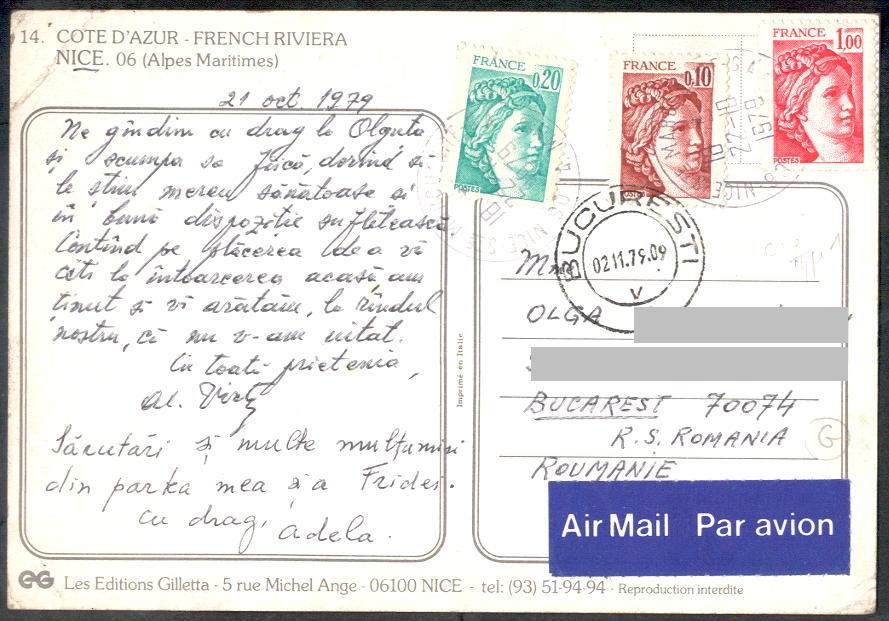 14. COTE D'AZUR - FRENCH RIVIERA
NICE. 06 (Alpes Maritimes)
21 oct. 1979
Ne gîndim cu drag la Olguta
și scumpa sa fiică, dorind să
le știm mereu sănătoase și
în bună dispoziție sufletească
Contînd pe plăcerea de a vă
citi la întoarcerea acasă am
ținut să vă arătăm, la rîndul
nostru, că nu v-am uitat.
Cu toată prietenia,
Al.
Sărutări și multe mulțumiri
din partea mea și a Fridei.
cu drag,
Adela.
Imprimé en Italie
FRANCE 0,20 POSTES
FRANCE 0,10 POSTES
FRANCE 1,00 POSTES
BUCUREȘTI
02.11.79.09
V
Mme
OLGA
BUCAREST 70074
R.S. ROMANIA
ROUMANIE
G
Air Mail Par avion
EG Les Editions Gilletta - 5 rue Michel Ange - 06100 NICE - tel: (93) 51-94-94 - Reproduction interdite